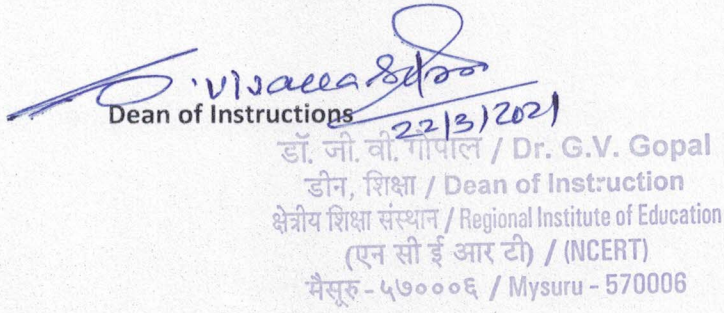 Dean of Instructions
22/3/2021
डॉ. जी. वी. गोपाल / Dr. G.V. Gopal
डीन, शिक्षा / Dean of Instruction
क्षेत्रीय शिक्षा संस्थान / Regional Institute of Education
(एन सी ई आर टी) / (NCERT)
मैसूरु - ५७०००६ / Mysuru - 570006